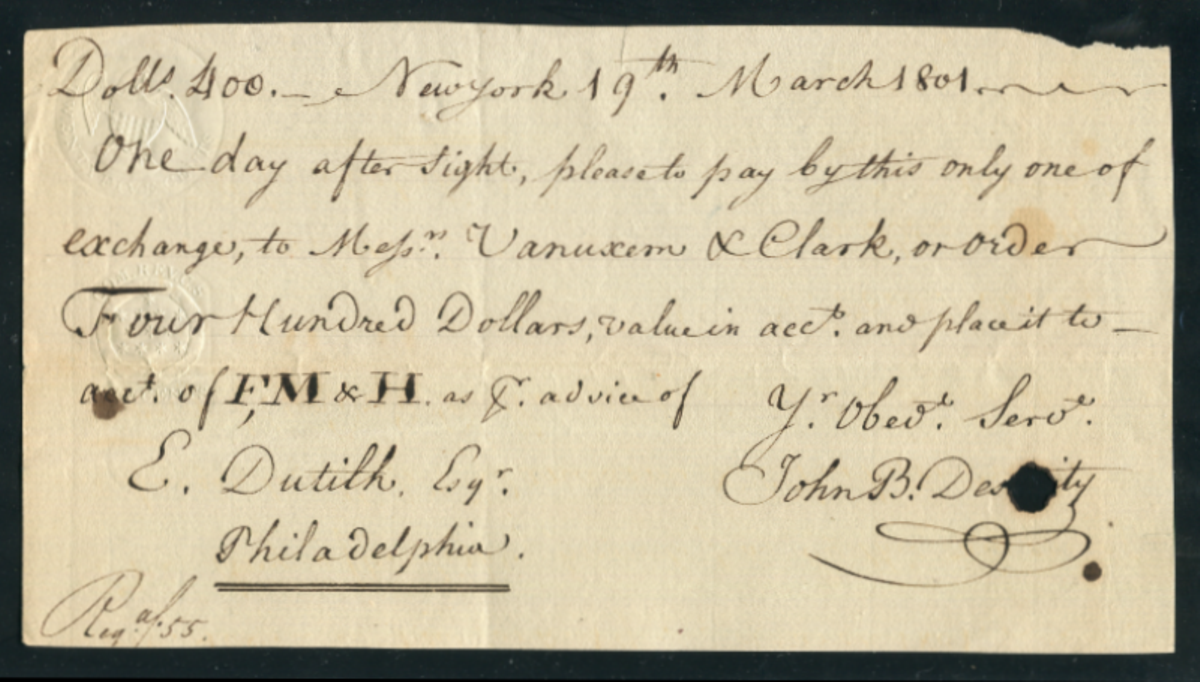 Dolls. 400. — New York 19th. March 1801
One day after sight, please to pay by this only one of
exchange, to Messrs. Vanuxem & Clark, or order
Four Hundred Dollars, value in acct. and place it to —
acct. of F, M & H. as pr. advice of
Yr. Obedt. Servt.
E. Dutilh. Esqr.
John B. Des ity
Philadelphia.
55.